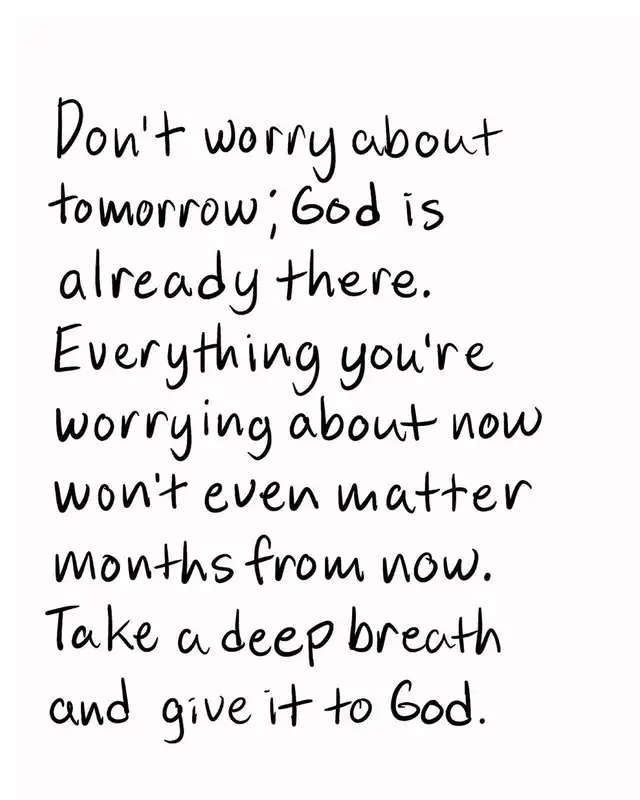 Don't worry about
tomorrow; God is
already there.
Everything you're
worrying about now
won't even matter
months from now.
Take a deep breath
and give it to God.